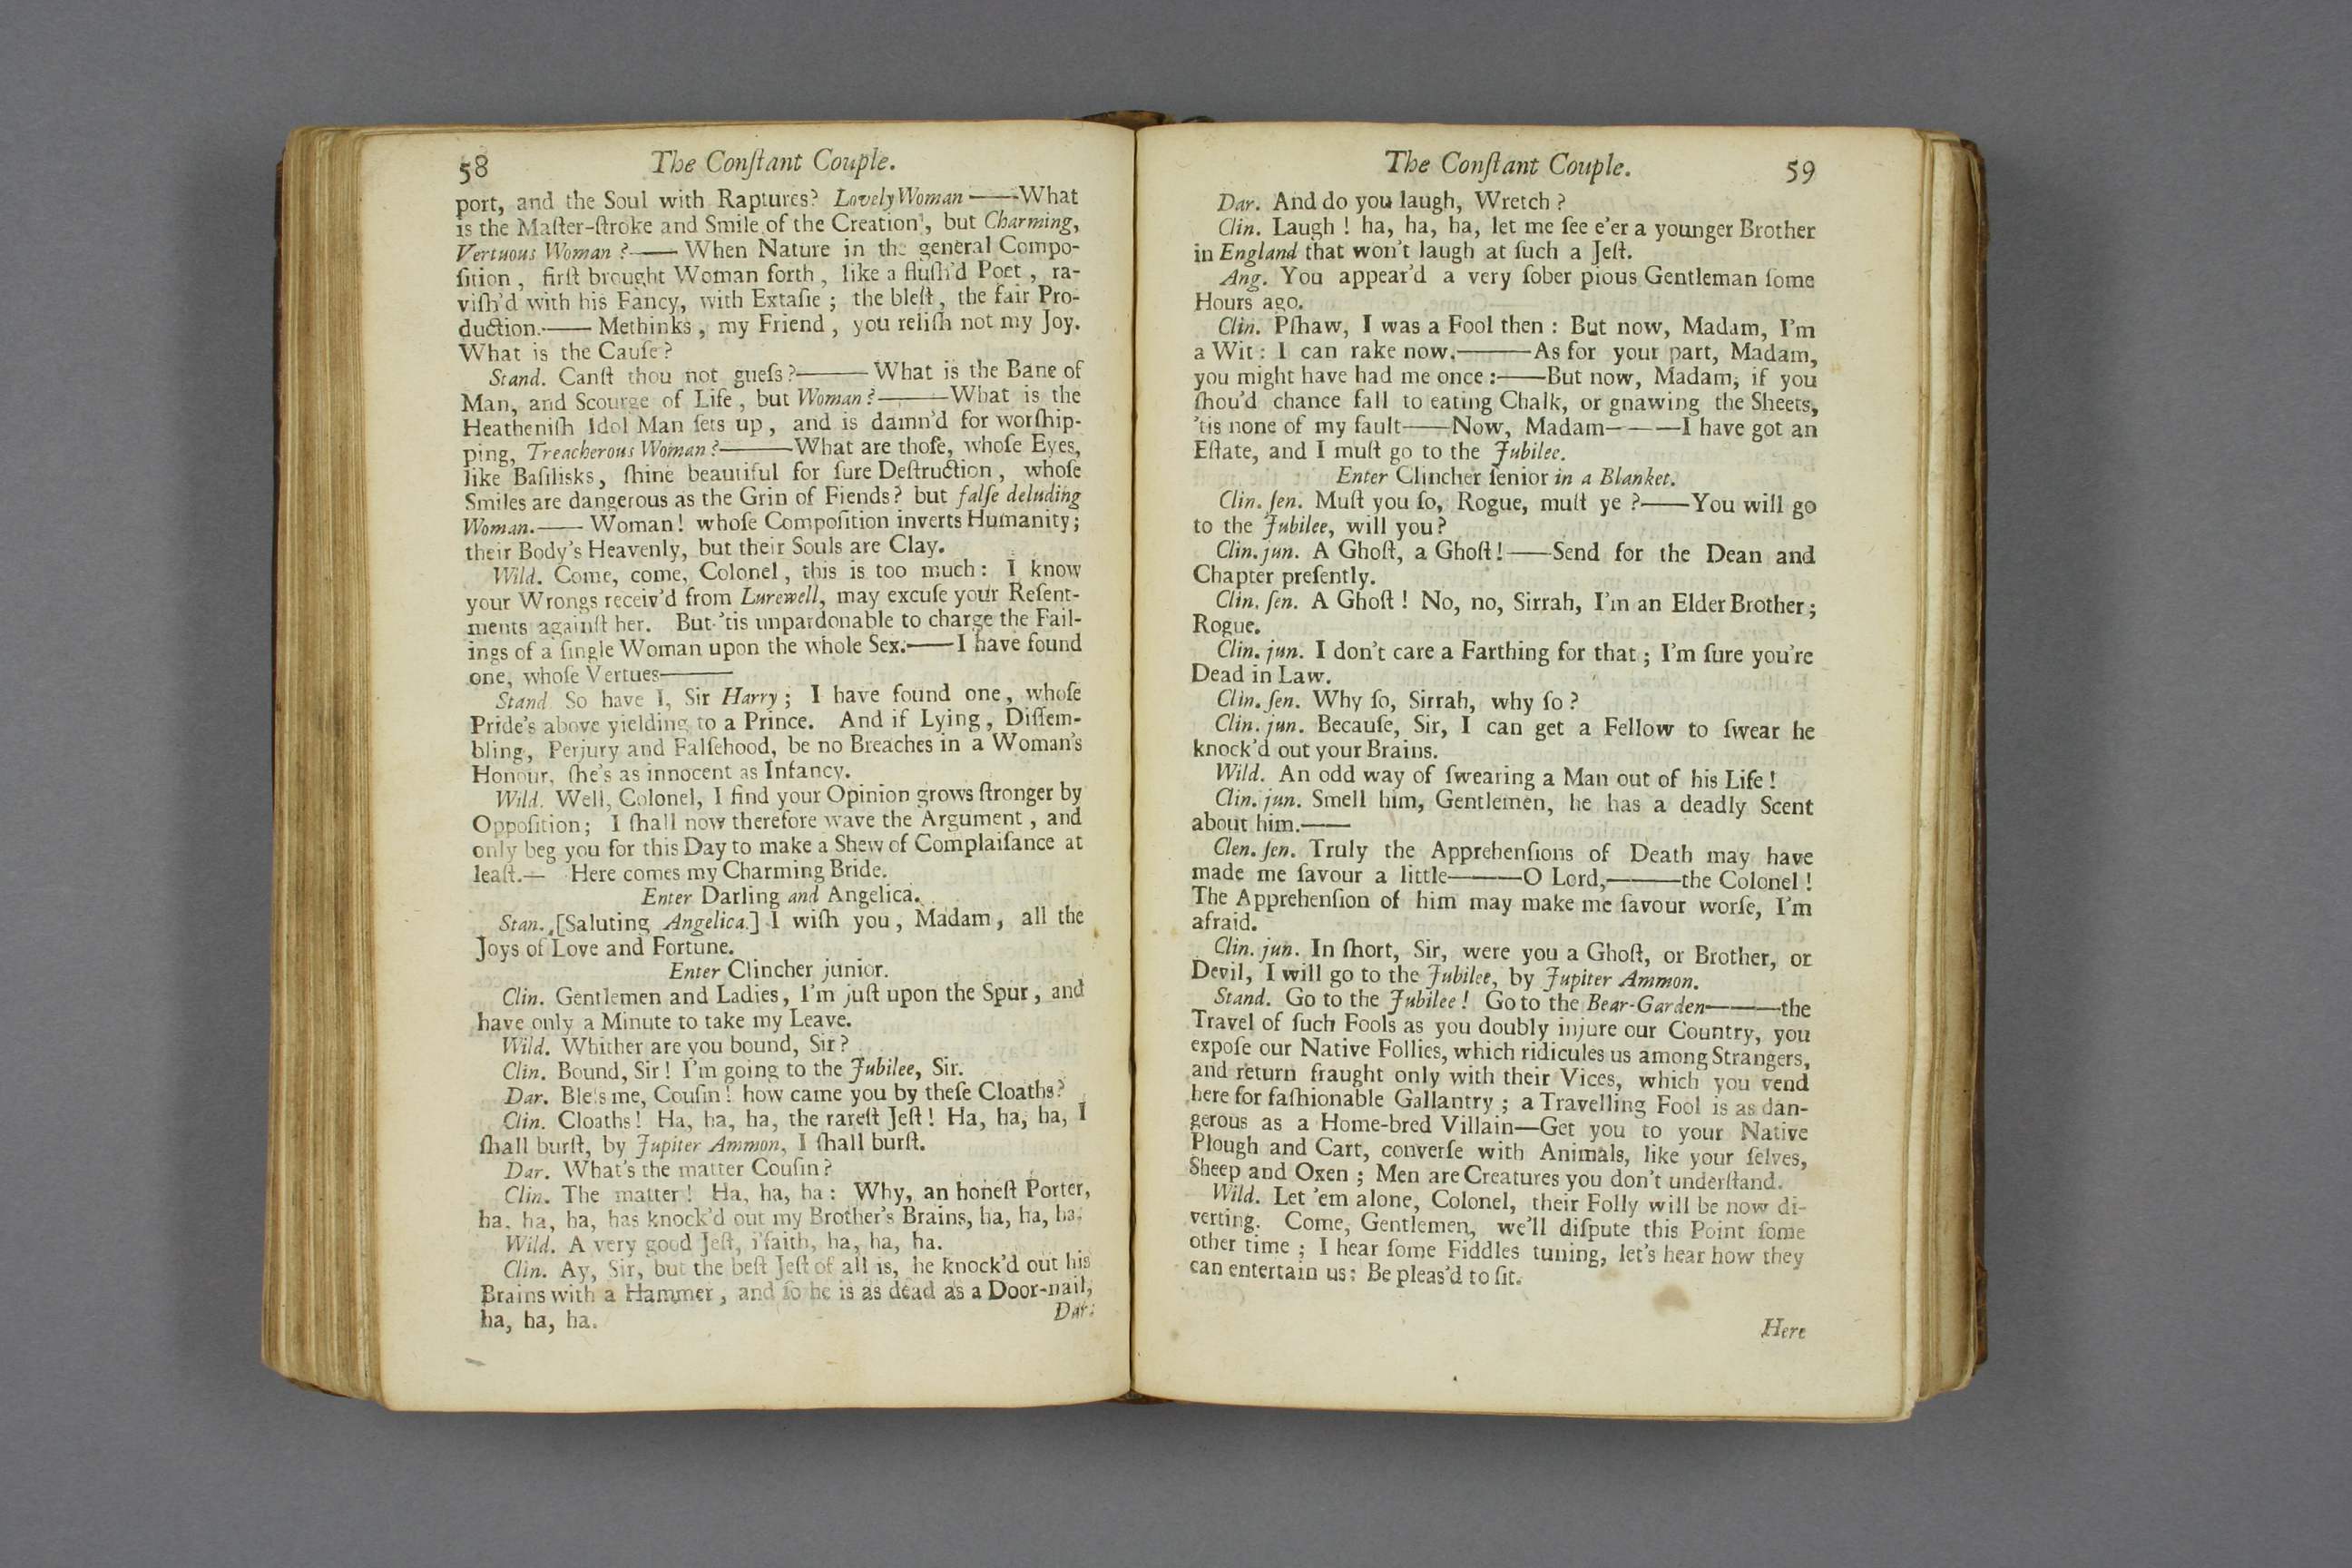 58 The Conſtant Couple.
port, and the Soul with Raptures? Lovely Woman ——What
is the Maſter-ſtroke and Smile of the Creation, but Charming,
Vertuous Woman ?—— When Nature in the general Compo-
ſition , firſt brought Woman forth , like a fluſh'd Poet , ra-
viſh'd with his Fancy, with Extaſie ; the bleſt , the fair Pro-
duction.—— Methinks , my Friend , you reliſh not my Joy.
What is the Cauſe ?
Stand. Canſt thou not gueſs ?——— What is the Bane of
Man, and Scourge of Life , but Woman ?———What is the
Heatheniſh Idol Man ſets up , and is damn'd for worſhip-
ping, Treacherous Woman ?———What are thoſe, whoſe Eyes,
like Baſilisks, ſhine beautiful for ſure Deſtruction , whoſe
Smiles are dangerous as the Grin of Fiends? but falſe deluding
Woman.—— Woman! whoſe Compoſition inverts Humanity;
their Body's Heavenly, but their Souls are Clay.
Wild. Come, come, Colonel , this is too much : I know
your Wrongs receiv'd from Lurewell, may excuſe your Reſent-
ments againſt her. But 'tis unpardonable to charge the Fail-
ings of a ſingle Woman upon the whole Sex.——I have found
one, whoſe Vertues———
Stand So have I, Sir Harry ; I have found one , whoſe
Pride's above yielding to a Prince. And if Lying , Diſſem-
bling, Perjury and Falſehood, be no Breaches in a Woman's
Honour, ſhe's as innocent as Infancy.
Wild. Well, Colonel, I find your Opinion grows ſtronger by
Oppoſition; I ſhall now therefore wave the Argument , and
only beg you for this Day to make a Shew of Complaiſance at
leaſt.— Here comes my Charming Bride.
Enter Darling and Angelica.
Stan. [Saluting Angelica.] I wiſh you , Madam , all the
Joys of Love and Fortune.
Enter Clincher junior.
Clin. Gentlemen and Ladies, I'm juſt upon the Spur , and
have only a Minute to take my Leave.
Wild. Whither are you bound, Sir ?
Clin. Bound, Sir! I'm going to the Jubilee, Sir.
Dar. Bleſs me, Couſin! how came you by theſe Cloaths?
Clin. Cloaths! Ha, ha, ha, the rareſt Jeſt! Ha, ha, ha, I
ſhall burſt, by Jupiter Ammon, I ſhall burſt.
Dar. What's the matter Couſin?
Clin. The matter! Ha, ha, ha: Why, an honeſt Porter,
ha, ha, ha, has knock'd out my Brother's Brains, ha, ha, ha.
Wild. A very good Jeſt, i'faith, ha, ha, ha.
Clin. Ay, Sir, but the beſt Jeſt of all is, he knock'd out his
Brains with a Hammer , and ſo he is as dead as a Door-nail,
ha, ha, ha.
Dar.
The Conſtant Couple. 59
Dar. And do you laugh, Wretch ?
Clin. Laugh ! ha, ha, ha, let me ſee e'er a younger Brother
in England that won't laugh at ſuch a Jeſt.
Ang. You appear'd a very ſober pious Gentleman ſome
Hours ago.
Clin. Pſhaw, I was a Fool then : But now, Madam, I'm
a Wit : I can rake now.———As for your part, Madam,
you might have had me once :——But now, Madam, if you
ſhou'd chance fall to eating Chalk, or gnawing the Sheets,
'tis none of my fault——Now, Madam———I have got an
Eſtate, and I muſt go to the Jubilee.
Enter Clincher ſenior in a Blanket.
Clin. ſen. Muſt you ſo, Rogue, muſt ye ?——You will go
to the Jubilee, will you?
Clin. jun. A Ghoſt, a Ghoſt!——Send for the Dean and
Chapter preſently.
Clin. ſen. A Ghoſt ! No, no, Sirrah, I'm an Elder Brother;
Rogue.
Clin. jun. I don't care a Farthing for that ; I'm ſure you're
Dead in Law.
Clin. ſen. Why ſo, Sirrah, why ſo ?
Clin. jun. Becauſe, Sir, I can get a Fellow to ſwear he
knock'd out your Brains.
Wild. An odd way of ſwearing a Man out of his Life !
Clin. jun. Smell him, Gentlemen, he has a deadly Scent
about him.——
Clen. ſen. Truly the Apprehenſions of Death may have
made me ſavour a little———O Lord,———the Colonel !
The Apprehenſion of him may make me ſavour worſe, I'm
afraid.
Clin. jun. In ſhort, Sir, were you a Ghoſt, or Brother, or
Devil, I will go to the Jubilee, by Jupiter Ammon.
Stand. Go to the Jubilee ! Go to the Bear-Garden———the
Travel of ſuch Fools as you doubly injure our Country, you
expoſe our Native Follies, which ridicules us among Strangers,
and return fraught only with their Vices, which you vend
here for faſhionable Gallantry ; a Travelling Fool is as dan-
gerous as a Home-bred Villain—Get you to your Native
Plough and Cart, converſe with Animals, like your ſelves,
Sheep and Oxen ; Men are Creatures you don't underſtand.
Wild. Let 'em alone, Colonel, their Folly will be now di-
verting. Come, Gentlemen, we'll diſpute this Point ſome
other time ; I hear ſome Fiddles tuning, let's hear how they
can entertain us: Be pleas'd to ſit.
Here